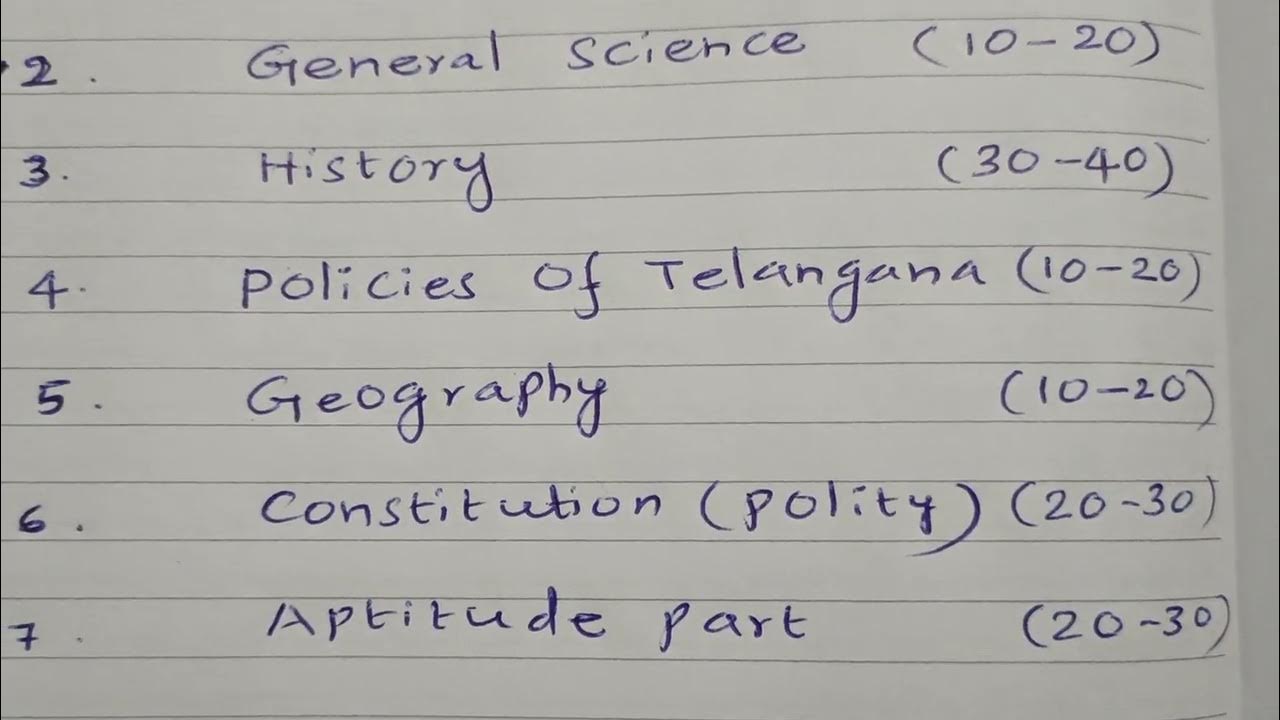 2. General Science (10-20)
3. History (30-40)
4. Policies Of Telangana (10-20)
5. Geography (10-20)
6. Constitution (polity) (20-30)
7. Aptitude part (20-30)